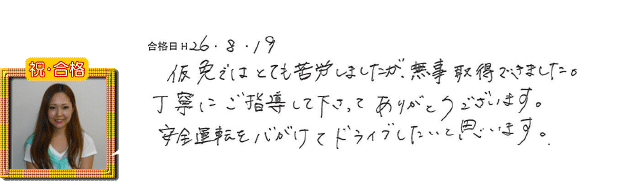 合格日 H 26.8.19
祝・合格
仮免ではとても苦労しましたが、無事取得できました。
丁寧にご指導して下さってありがとうございます。
安全運転を心がけてドライブしたいと思います。